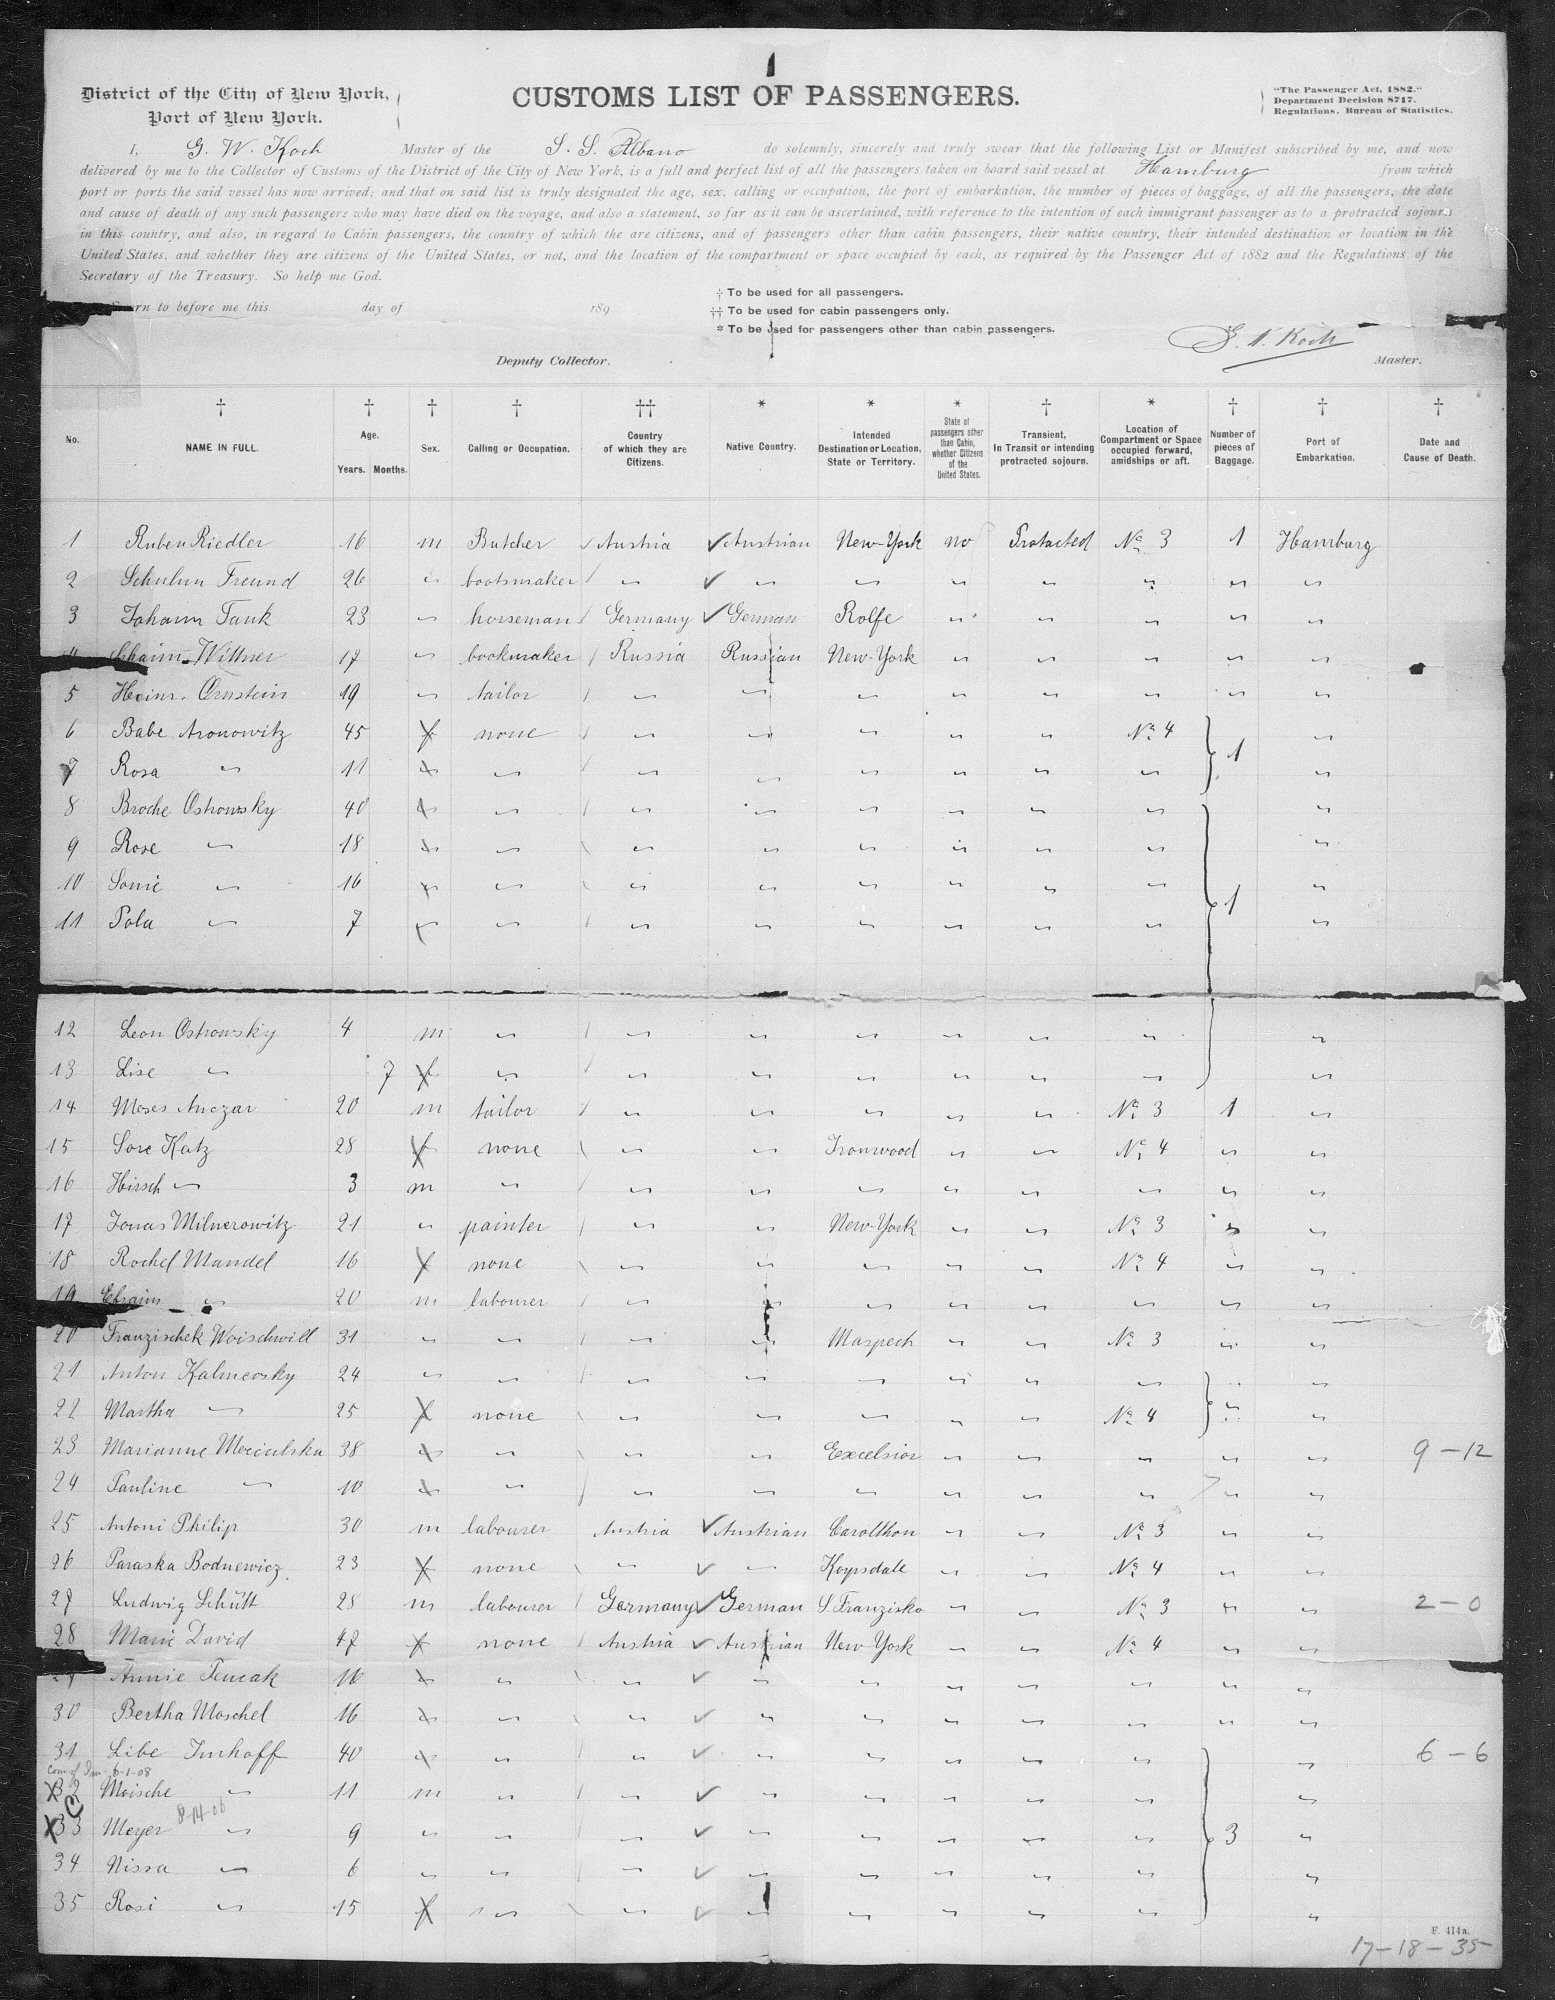 District of the City of New York,
Port of New York.
CUSTOMS LIST OF PASSENGERS.
"The Passenger Act, 1882."
Department Decision 8717.
Regulations, Bureau of Statistics.
I, G. W. Koch Master of the S. S. Albano do solemnly, sincerely and truly swear that the following List or Manifest subscribed by me, and now
delivered by me to the Collector of Customs of the District of the City of New York, is a full and perfect list of all the passengers taken on board said vessel at Hamburg from which
port or ports the said vessel has now arrived; and that on said list is truly designated the age, sex, calling or occupation, the port of embarkation, the number of pieces of baggage, of all the passengers, the date
and cause of death of any such passengers who may have died on the voyage, and also a statement, so far as it can be ascertained, with reference to the intention of each immigrant passenger as to a protracted sojourn
in this country, and also, in regard to Cabin passengers, the country of which the are citizens, and of passengers other than cabin passengers, their native country, their intended destination or location in the
United States, and whether they are citizens of the United States, or not, and the location of the compartment or space occupied by each, as required by the Passenger Act of 1882 and the Regulations of the
Secretary of the Treasury. So help me God.
Sworn to before me this day of 189
† To be used for all passengers.
†† To be used for cabin passengers only.
* To be used for passengers other than cabin passengers.
Deputy Collector.
Koch Master.
† † † † †† * * * † * † † †
No. NAME IN FULL. Age. Years. Months. Sex. Calling or Occupation. Country of which they are Citizens. Native Country. Intended Destination or Location, State or Territory. State of passengers other than Cabin, whether Citizens of the United States. Transient, In Transit or intending protracted sojourn. Location of Compartment or Space occupied forward, amidships or aft. Number of pieces of Baggage. Port of Embarkation. Date and Cause of Death.
1 Ruben Riedler 16 m Butcher Austria ✓ Austrian New-York no Protacted No 3 1 Hamburg
2 Schulim Freund 26 " bootsmaker " ✓ " " " " " " "
3 Johann Tank 23 " horseman Germany ✓ German Rolfe " " " " "
4 Chaim Wittner 17 " bookmaker Russia Russian New-York " " " " "
5 Heinr. Ornstein 19 " tailor " " " " " " " "
6 Babe Aronowitz 45 f none " " " " " No 4 1 "
7 Rosa " 11 " " " " " " " " "
8 Broche Ostrowsky 40 " " " " " " " " 1 "
9 Rose " 18 " " " " " " " " "
10 Sonie " 16 " " " " " " " " "
11 Pola " 7 " " " " " " " " "
12 Leon Ostrowsky 4 m " " " " " " " "
13 Lise " 7 f " " " " " " " "
14 Moses Anczar 20 m tailor " " " " " No 3 1 "
15 Sore Katz 28 f none " " Ironwood " " No 4 " "
16 Hirsch " 3 m " " " " " " " " "
17 Jonas Milnerowitz 21 " painter " " New-York " " No 3 " "
18 Rochel Mandel 16 f none " " " " " No 4 " "
19 Efraim " 20 m labourer " " " " " " " "
20 Franzischek Woischwill 31 " " " " Maspech " " No 3 " "
21 Anton Kalmeosky 24 " " " " " " " " " "
22 Martha " 25 f none " " " " " No 4 " "
23 Marianne Mecculska 38 " " " " Excelsior " " " " " 9-12
24 Pauline " 10 " " " " " " " " " "
25 Antoni Philip 30 m labourer Austria ✓ Austrian Carollton " " No 3 " "
26 Paraska Bodnewicz 23 f none " ✓ " Koypsdale " " No 4 " "
27 Ludwig Schütt 28 m labourer Germany ✓ German S. Franzisko " " No 3 " " 2-0
28 Marie David 47 f none Austria ✓ Austrian New-York " " No 4 " "
29 Annie Tencak 16 " " " ✓ " " " " " " "
30 Bertha Moschel 16 " " " ✓ " " " " " " "
31 Libe Imhoff 40 " " " ✓ " " " " " " 6-6
Com of Im. 6-1-08
X 32 Moische " 11 m " " ✓ " " " " " "
X C 33 Meyer 8-14-06 " 9 " " " ✓ " " " " " 3 "
34 Nissa " 6 " " " ✓ " " " " " "
35 Rosi " 15 f " " ✓ " " " " " "
F. 414a.
17-18-35